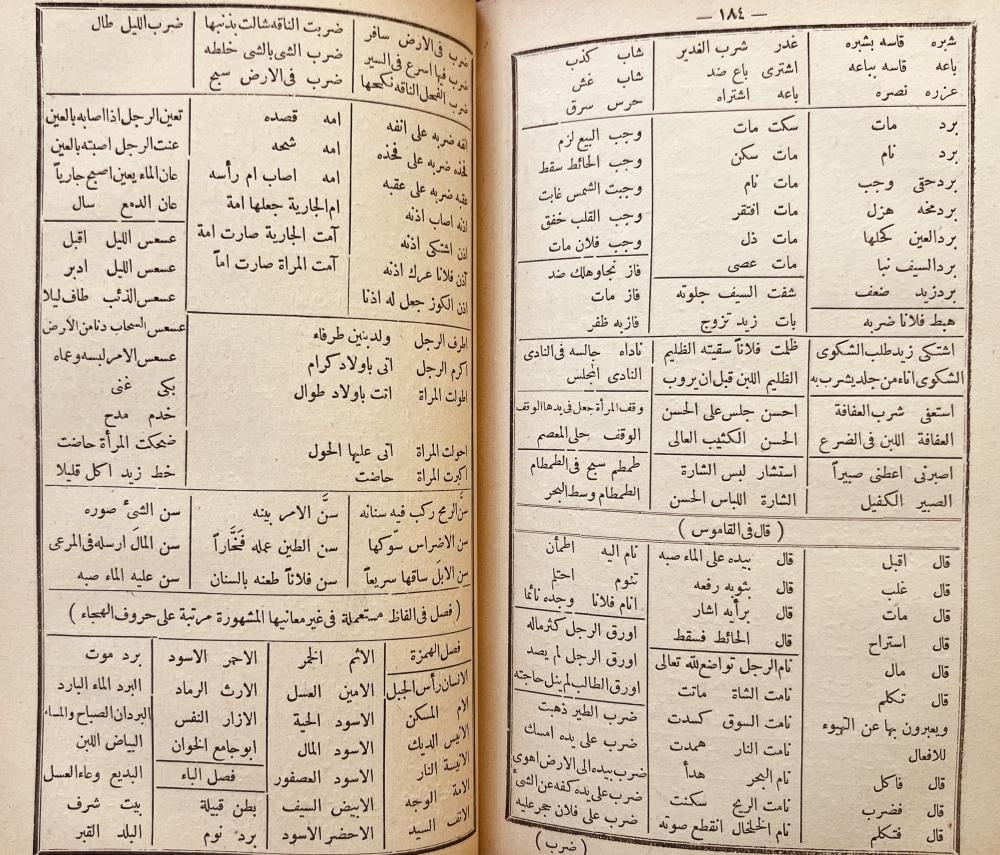 — ١٨٤ —
شبره قاسه بشبره
باعه قاسه بباعه
عزره نصره
غدر شرب الغدير
اشترى باع ضد
باعه اشتراه
شاب كذب
شاب غش
حرس سرق
برد مات
برد نام
بردحقى وجب
بردمخه هزل
بردالعين كحلها
بردالسيف نبا
بردزيد ضعف
هبط فلانا ضربه
سكت مات
مات سكن
مات نام
مات افتقر
مات ذل
مات عصى
شفت السيف جلوته
بات زيد تزوج
وجب البيع لزم
وجب الحائط سقط
وجبت الشمس غابت
وجب القلب خفق
وجب فلان مات
فاز نجاوهلك ضد
فاز مات
فازبه ظفر
اشتكى زيدطلب الشكوى
الشكوى اناءمن جلديشرب به
ظلمت فلاناً سقيته الظليم
الظليم اللبن قبل ان يروب
ناداه جالسه فى النادى
النادى المجلس
استعفى شرب العفافة
العفافة اللبن فى الضرع
احسن جلس على الحسن
الحسن الكثيب العالى
وقف المرأة جعل فى يدها الوقف
الوقف حلى المعصم
اصبرنى اعطنى صبيراً
الصبير الكفيل
استشار لبس الشارة
الشارة اللباس الحسن
طمطم سبح فى الطمطام
الطمطام وسط البحر
( قال فى القاموس )
قال اقبل
قال غلب
قال مات
قال استراح
قال مال
قال تكلم
ويعبرون بها عن التهيوء
للافعال
قال فاكل
قال فضرب
قال فتكلم
قال بيده على الماء صبه
قال بثوبه رفعه
قال برأيه اشار
قال الحائط فسقط
نام الرجل تواضع لله تعالى
نامت الشاة ماتت
نامت السوق كسدت
نامت النار همدت
نام البحر هدأ
نامت الريح سكنت
نام الخلخال انقطع صوته
نام اليه اطمأن
تنوم احتلم
انام فلانا وجده نائما
اورق الرجل كثرماله
اورق الرجل لم يصد
اورق الطالب لم ينل حاجته
ضرب الطير ذهبت
ضرب على يده امسك
ضرب بيده الى الارض اهوى
ضرب على يده كفه عن الشئ
ضرب على فلان حجر عليه
( ضرب )
ضرب فى الارض سافر
ضرب فيها اسرع فى السير
ضرب الفحل الناقه نكحها
ضربت الناقه شالت بذنبها
ضرب الشى بالشى خلطه
ضرب فى الارض سبح
ضرب الليل طال
انفه ضربه على انفه
فخذه ضربه على فخذه
عقبه ضربه على عقبه
اذنه اصاب اذنه
اذن اشتكى اذنه
آذن فلانا عرك اذنه
اذن الكوز جعل له اذنا
امه قصده
امه شجه
امه اصاب ام رأسه
ام الجارية جعلها امة
آمت الجارية صارت امة
آمت المراة صارت اماً
تعين الرجل اذا اصابه بالعين
عنت الرجل اصبته بالعين
عان الماء يعين اصبح جارياً
عان الدمع سال
عسعس الليل اقبل
عسعس الليل ادبر
عسعس الذئب طاف ليلا
عسعس السحاب دنا من الارض
عسعس الامر لبسه وعماه
بكى غنى
خدم مدح
ضحكت المرأة حاضت
خط زيد اكل قليلا
اطرف الرجل ولد بنين طرفاء
اكرم الرجل اتى باولاد كرام
اطولت المراة اتت باولاد طوال
احولت المراة اتى عليها الحول
اكبرت المراة حاضت
سنَّ الرمح ركب فيه سنانه
سن الاضراس سوّكها
سن الابل ساقها سريعاً
سنَّ الامر بينه
سن الطين عمله فخَّاراً
سن فلاناً طعنه بالسنان
سن الشئ صوره
سن المال ارسله فى المرعى
سن عليه الماء صبه
( فصل فى الفاظ مستعملة فى غير معانيها المشهورة مرتبة على حروف الهجاء )
فصل الهمزة
الانسان رأس الجبل
الام المسكن
الانيس الديك
الانيسة النار
الامة الوجه
الانف السيد
الاثم الخمر
الامين العسل
الاسود الحية
الاسود المال
الاسود العصفور
الابيض السيف
الاخضر الاسود
الاحمر الاسود
الارث الرماد
الازار النفس
ابوجامع الخوان
فصل الباء
بطن قبيلة
برد نوم
برد موت
البرد الماء البارد
البردان الصباح والمساء
البياض اللبن
البديع وعاء العسل
بيت شرف
البلد القبر